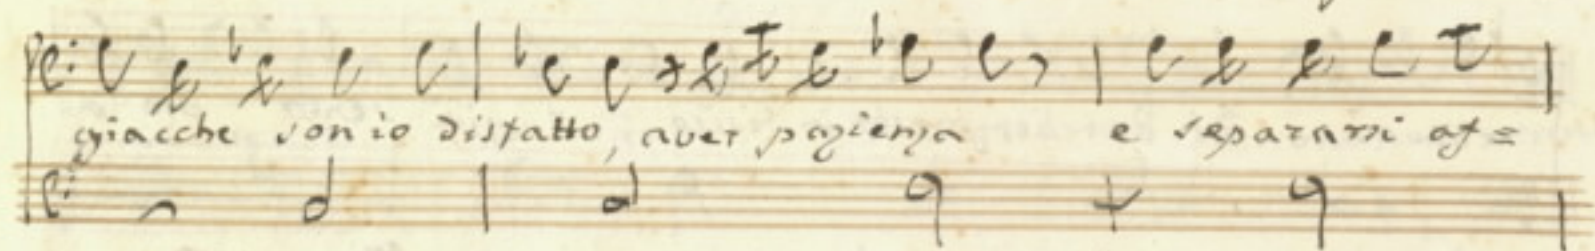 giacche son io disfatto, aver pazienza e separarsi af=